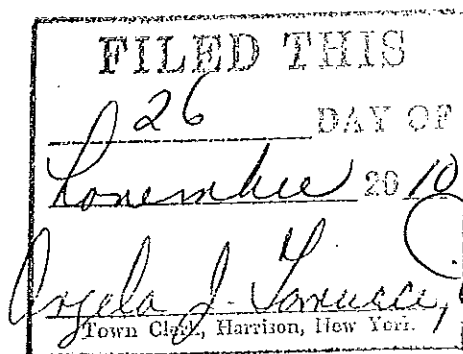 FILED THIS
26 DAY OF
November 2010
Angela J.
Town Clerk, Harrison, New York.